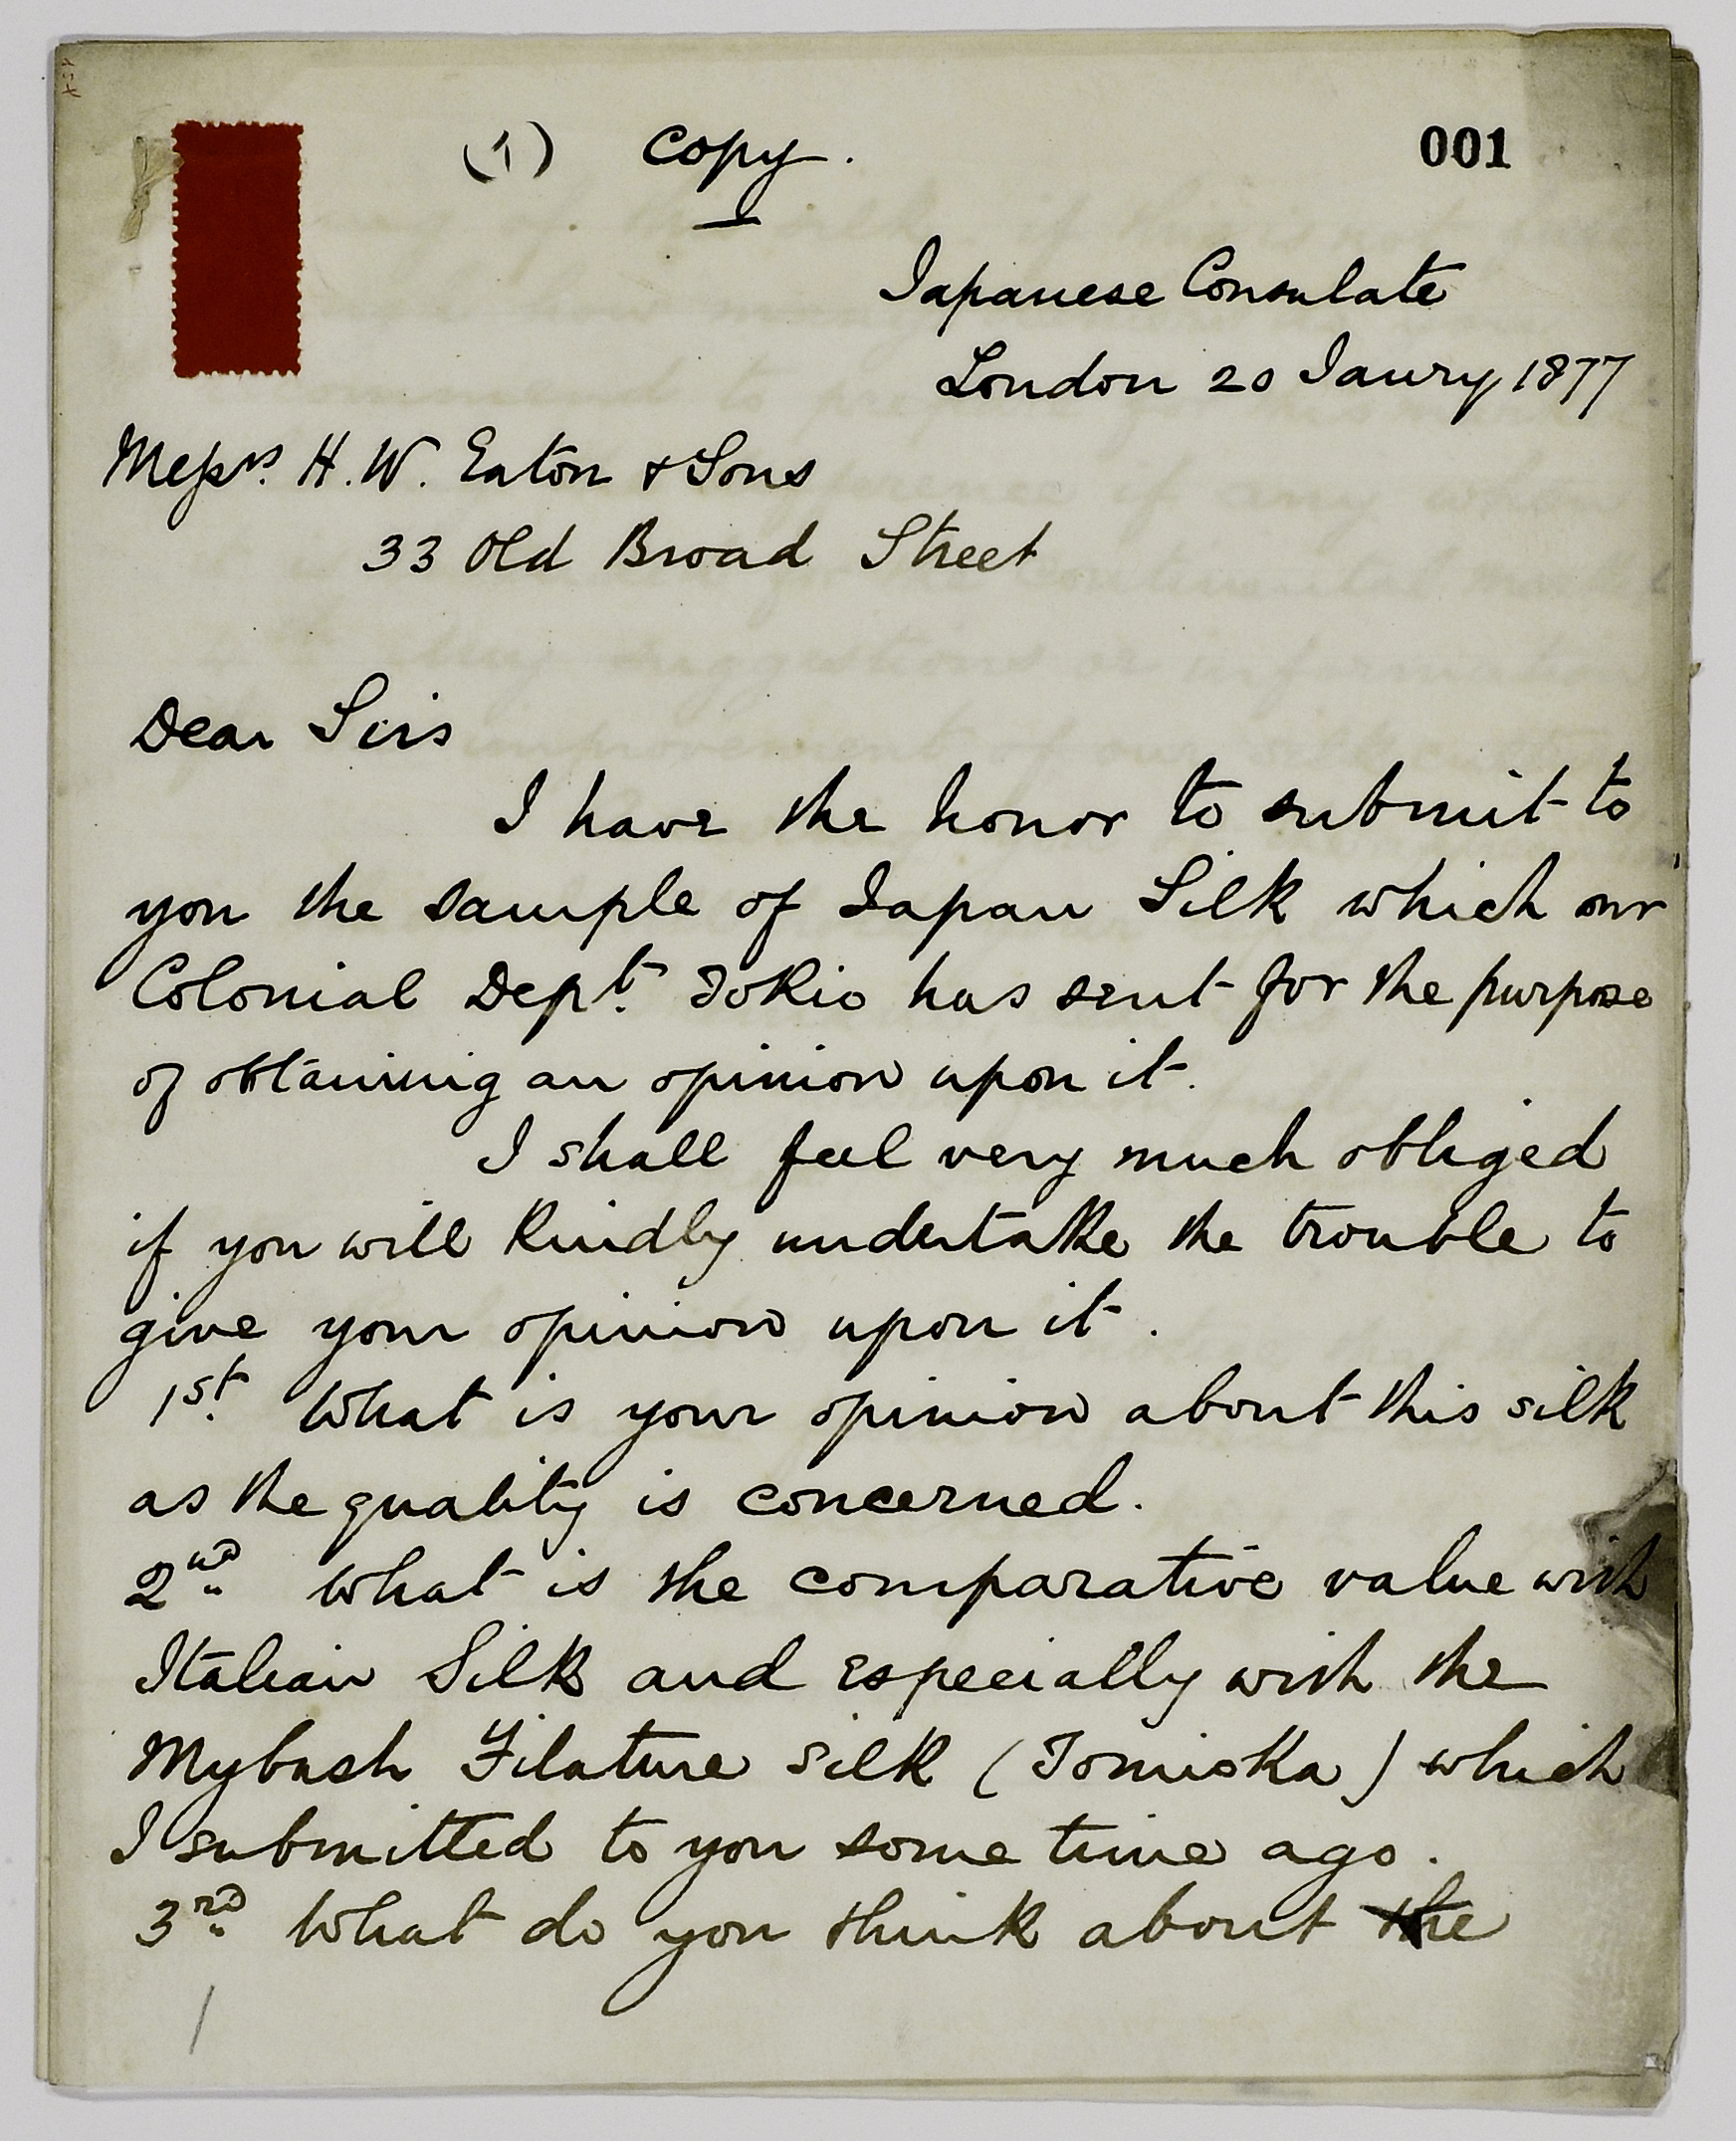 (1) Copy.
001
Japanese Consulate
London 20 Janry 1877
Messrs. H. W. Eaton & Sons
33 Old Broad Street
Dear Sirs
I have the honor to submit to
you the sample of Japan Silk which our
Colonial Dept. Tokio has sent for the purpose
of obtaining an opinion upon it.
I shall feel very much obliged
if you will kindly undertake the trouble to
give your opinion upon it.
1st. What is your opinion about this silk
as the quality is concerned.
2nd What is the comparative value with
Italian Silk and especially with the
Mybash Filature silk (Tomioka) which
I submitted to you some time ago.
3rd What do you think about the
1